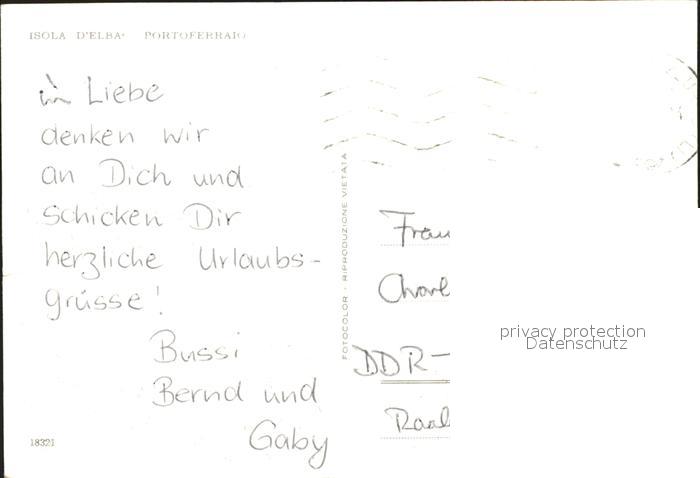 ISOLA D'ELBA - PORTOFERRAIO
in Liebe
denken wir
an Dich und
schicken Dir
herzliche Urlaubs-
grüsse!
Bussi
Bernd und
Gaby
18321
FOTOCOLOR - RIPRODUZIONE VIETATA
Frau
Charl
DDR-
privacy protection
Datenschutz